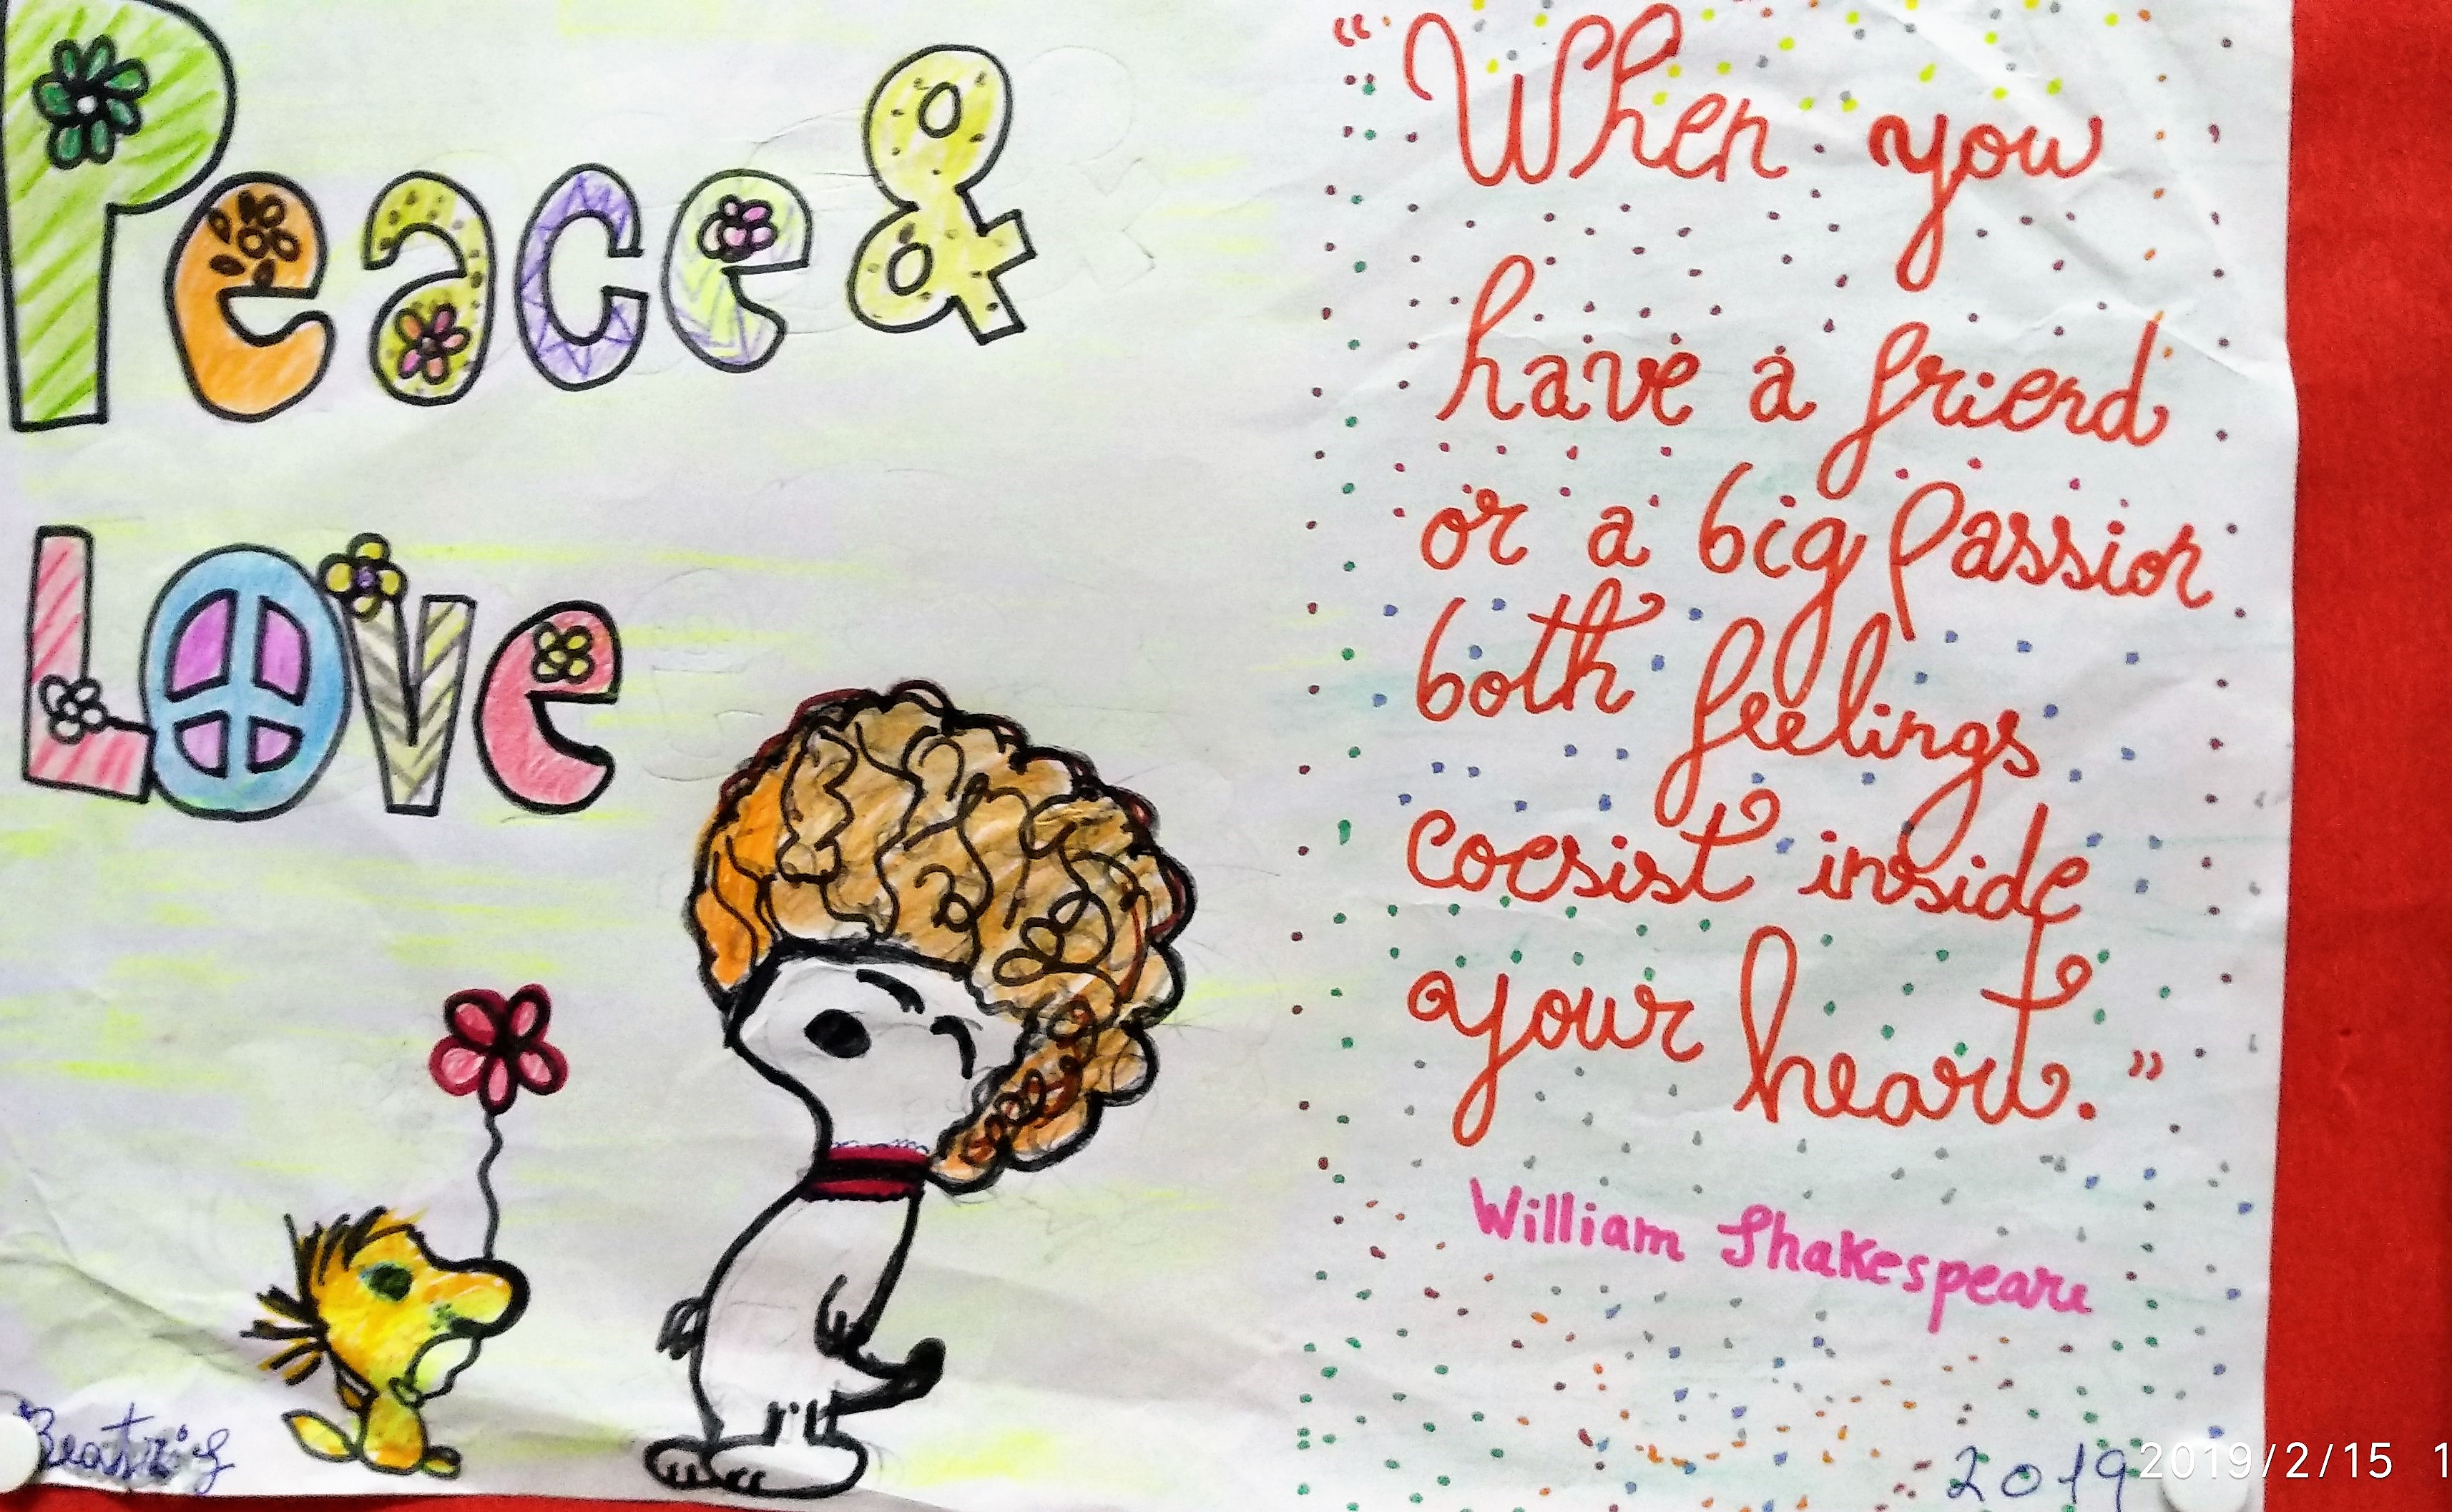 Peace &
Love
“When you
have a friend
or a big passion
both feelings
coesist inside
your heart.”
William Shakespeare
Beatriz
2019
2019/2/15 1